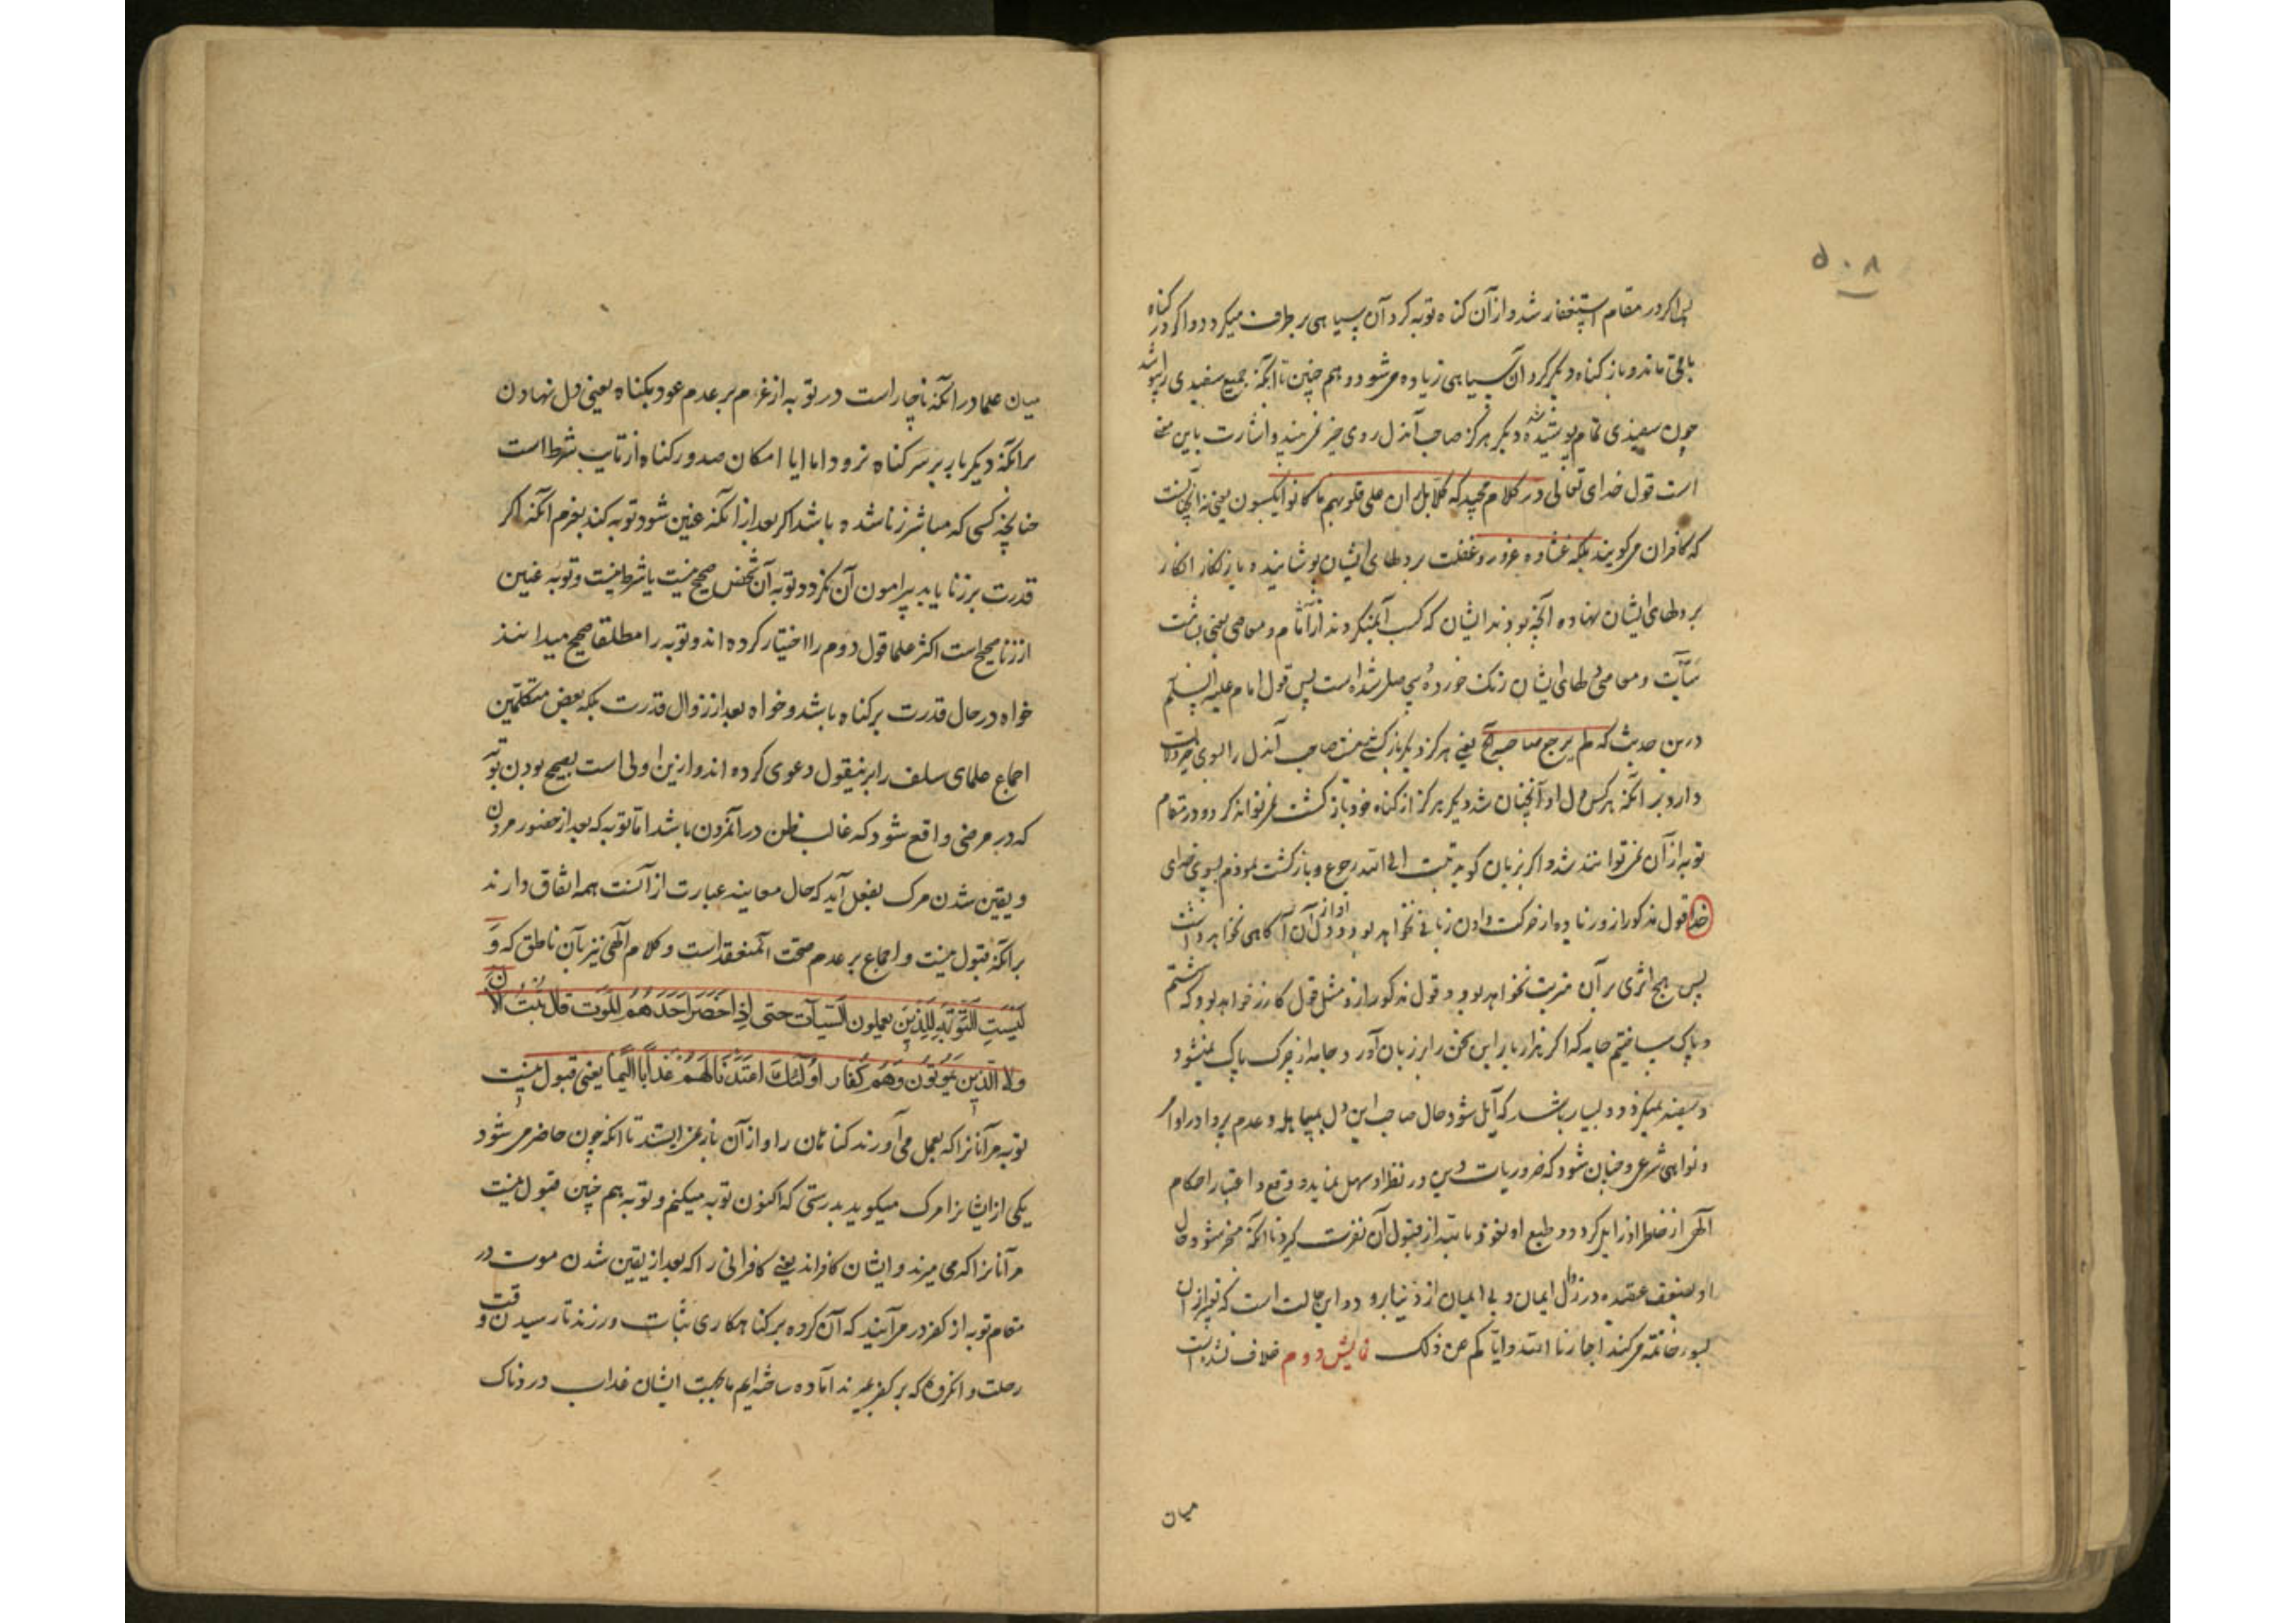 ۵۰۸
پس اگر در مقام استغفار شد و از آن کناه توبه کرد آن سیاهی بر طرف میکردد و اگر در کناه
باقی ماند و باز کناه دیگر کرد آن سیاهی زیاده می شود و هم چنین تا انکه جمیع سفیدی را بپوشاند
چون سفیدی تمام پوشیده شد دیگر هرکز صاحب آندل روی خیر نمی بیند و اشارت باین معنی
است قول خدای تعالی در کلام مجید که کلا بل ران علی قلوبهم ما کانوا یکسبون یعنی نه آنچنانست
که کافران می کویند بلکه غشاوه غرور و غفلت بر دلهای ایشان پوشانیده یا زنکار انکار
بر دلهای ایشان نهاده آنچه بودند ایشان که کسب آن میکردند از آثام و معاصی یعنی بشامت
سیّآت و معاصی دلهای ایشان زنک خورده شده است پس قول امام علیه السلام
درین حدیث که لم یرجع صاحبه الخ یعنی هرکز دیگر باز کشت نیست صاحب آندل را بسوی خیر دلالت
دارد بر انکه هر کس دل او آنچنان شد دیگر هرکز از کناه خود باز کشت نمی تواند کرد و در مقام
توبه از آن نمی تواند شد و اگر بزبان کوید تبت الی الله رجوع و باز کشت نمودم بسوی خدای
خدا قول مذکور از و زیاده از حرکت دادن زبانی نخواهد بود و دل او از آن آکاهی نخواهد داشت
پس هیچ اثری بر آن مترتب نخواهد بود و قول مذکور از و مثل قول کازر خواهد بود که شستم
و پاک ساختم جامه که اگر هزار بار این سخن را بر زبان آورد جامه از چرک پاک نمیشود
و سفید نمیکردد و بسیار باشد که آیل شود حال صاحب این دل بمساهله و عدم پروا در اوامر
و نواهی شرعی و چنان شود که ضروریات دین در نظر او سهل نماید و وقع و اعتبار احکام
الهی از خاطر او زایل کردد و طبع او از قبول آن نفرت کیرد تا انکه منجر شود حال
او بضعف عقیده و زوال ایمان و بی ایمان از دنیا برود و این حالت است که تعبیر از آن
بسوء خاتمه می کنند اجارنا الله و ایاکم من ذلک نمایش دوم خلاف نشده است
میان
میان علما در انکه ناچار است در توبه از عزم بر عدم عود بکناه یعنی دل نهادن
بر انکه دیگر بار بر سر کناه نرود اما ایا امکان صدور کناه از تایب شرط است
چنانچه کسی که مباشر زنا شده باشد اگر بعد از انکه عنین شود توبه کند بعزم انکه اگر
قدرت بر زنا یابد پیرامون آن نکردد توبه آن شخص صحیح نیست یا شرط نیست و توبه عنین
از زنا صحیح است اکثر علما قول دوم را اختیار کرده اند و توبه را مطلقا صحیح میدانند
خواه در حال قدرت بر کناه باشد و خواه بعد از زوال قدرت بلکه بعض متکلمین
اجماع علمای سلف را بر نیقول دعوی کرده اند و ازین اولی است بصحیح بودن توبه
که در مرضی واقع شود که غالب ظن در آن مردن باشد اما توبه که بعد از حضور مردن
و یقین شدن مرک بفعل آید که حال معاینه عبارت از آنست همه اتفاق دارند
بر انکه قبول نیست و اجماع بر عدم صحت ان منعقد است و کلام الهی نیز بآن ناطق که وَ
لَیْسَتِ التَّوْبَةِ لِلَّذِینَ یعملون السّیآت حتی اِذا حَضَرَ اَحَدَهُمُ المَوت قالَ تُبْتُ الآن
ولا الَّذین یَمُوتُون وَهُمْ کُفّار اُولئِکَ اعتَدْنا لَهُمْ عَذاباً اَلیماً یعنی قبول نیست
توبه مر آنانرا که بعمل می آورند کناهان را و از آن باز نمی ایستند تا انکه چون حاضر می شود
یکی از ایشانرا مرک میکوید بدرستی که اکنون توبه میکنم و توبه هم چنین قبول نیست
مر آنانرا که می میرند و ایشان کافراند یعنی کافرانی را که بعد از یقین شدن موت در
مقام توبه از کفر در می آیند که آن کروه بر کناهکاری ثبات ورزند تا رسیدن وقت
رحلت و انکروه که بر کفر میرند آماده ساخته ایم ما بجهت ایشان عذاب دردناک